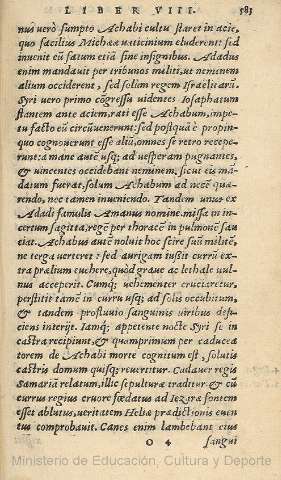 LIBER VIII. 583
nus verò sumpto Achabi cultu staret in acie,
quo facilius Michææ vaticinium eluderent: sed
inuenit eũ fatum etiã sine insignibus. Adadus
enim mandauit per tribunos militũ, ut neminem
alium occiderent, sed solim regem Israelitarũ.
Syri vero primo cõgressu uidentes Iosaphatum
stantem ante aciem, rati esse Achabum, impe-
tu facto eũ circũuenerunt: sed postquã è propin-
quo cognouerunt esse aliũ, omnes se retro recepe-
runt: a mane autẽ usq; ad uesperam pugnantes,
& uincentes occidebant neminem, sicut eis mã-
datum fuerat, solum Achabum ad necẽ quæ-
rendo, nec tamen inueniendo. Tandem unus ex
Adadi famulis Amanus nomine, missa in in-
certum sagitta, regẽ per thoracẽ in pulmonẽ sau
ciat. Achabus autẽ noluit hoc scire suũ militẽ,
ne terga uerteret: sed aurigam iußit currũ ex-
tra prælium euehere, quòd graue ac lethale vul-
nus acceperit. Cumq; uehementer cruciaretur,
perstitit tamẽ in curru usq; ad solis occubitum,
& tandem profluuio sanguinis uiribus defi-
ciens interijt. Iamq; appetente nocte Syri se in
castra recipiunt, & quamprimum per caducea
torem de Achabi morte cognitum est, solutis
castris domum quisq; reuertitur. Cadauer regis
Samariã relatum, illic sepulturæ traditur & cũ
currus regius cruore fœdatus ad Iezira fontem
esset ablutus, ueritatem Heliæ prædictionis euen
tus comprobauit. Canes enim lambebant eius
O 4 sangui
Ministerio de Educación, Cultura y Deporte